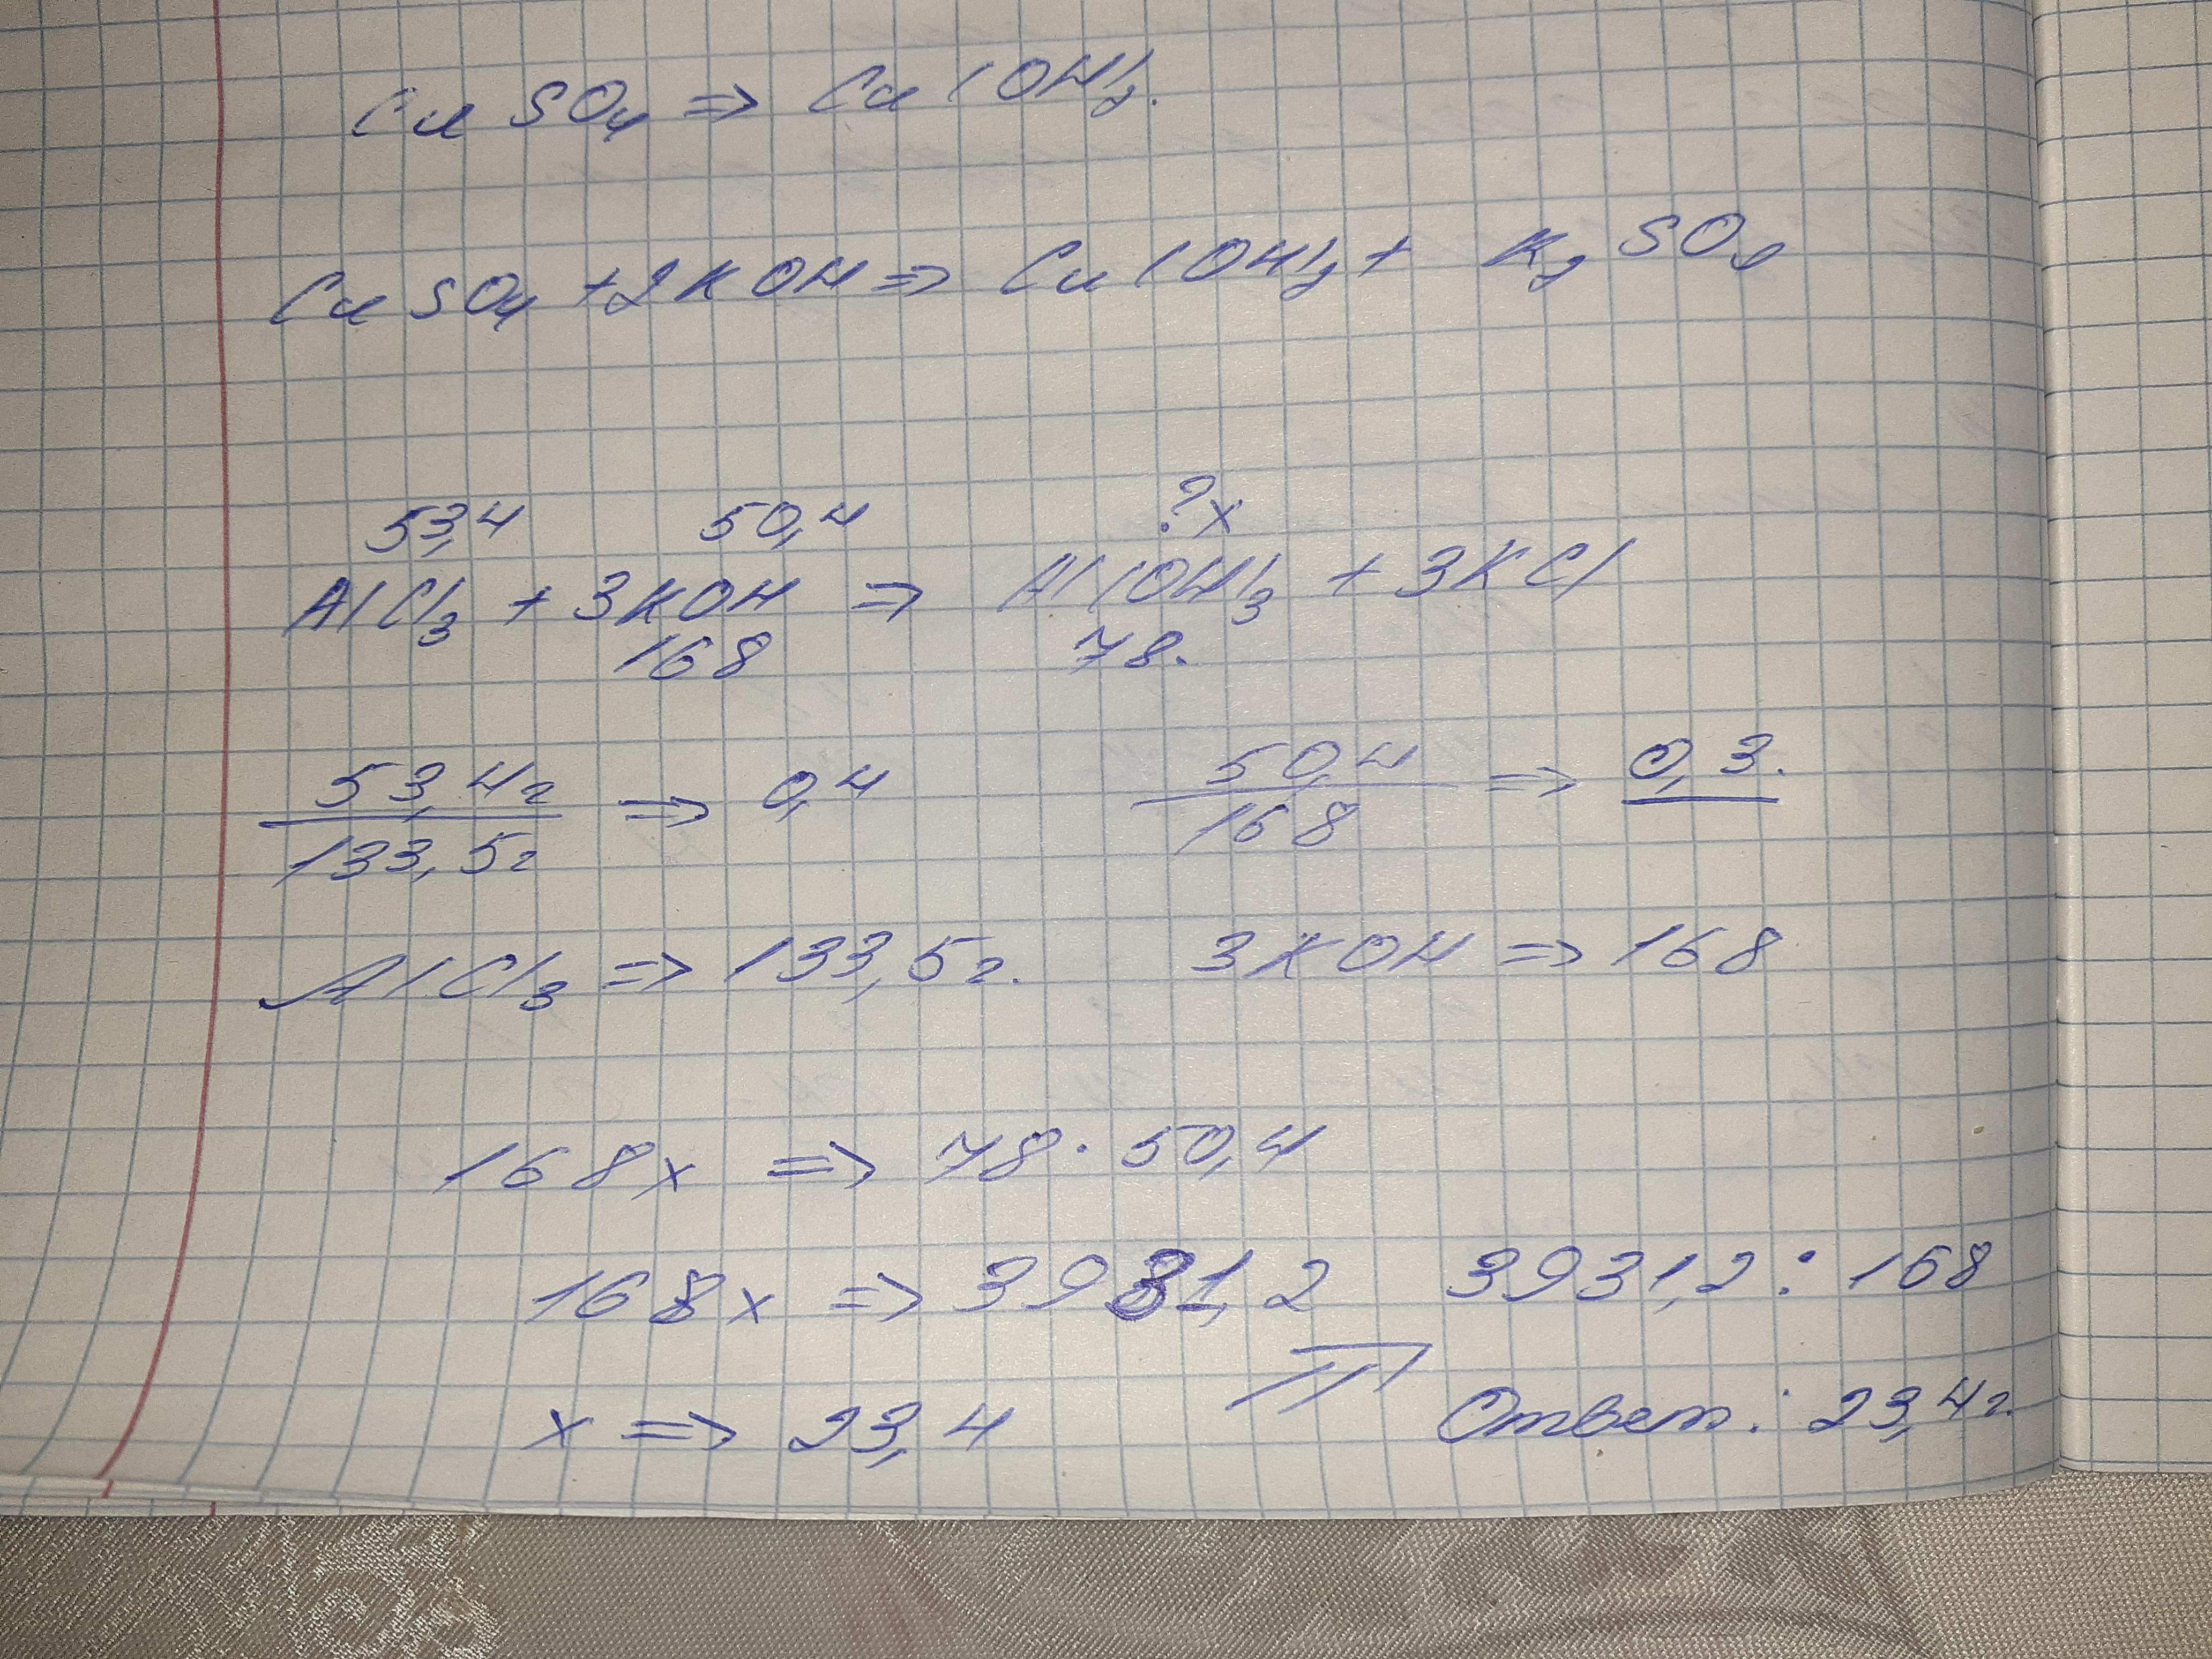 CuSO₄ => Cu(OH)₂.
CuSO₄ + 2KOH => Cu(OH)₂ + K₂SO₄
53,4 50,4 ?x
AlCl₃ + 3KOH => Al(OH)₃ + 3KCl
168 78.
53,4г / 133,5г => 0,4 50,4 / 168 => 0,3.
AlCl₃ => 133,5г. 3KOH => 168
168x => 78 · 50,4
168x => 3931,2 3931,2 : 168
x => 23,4 Ответ: 23,4г.